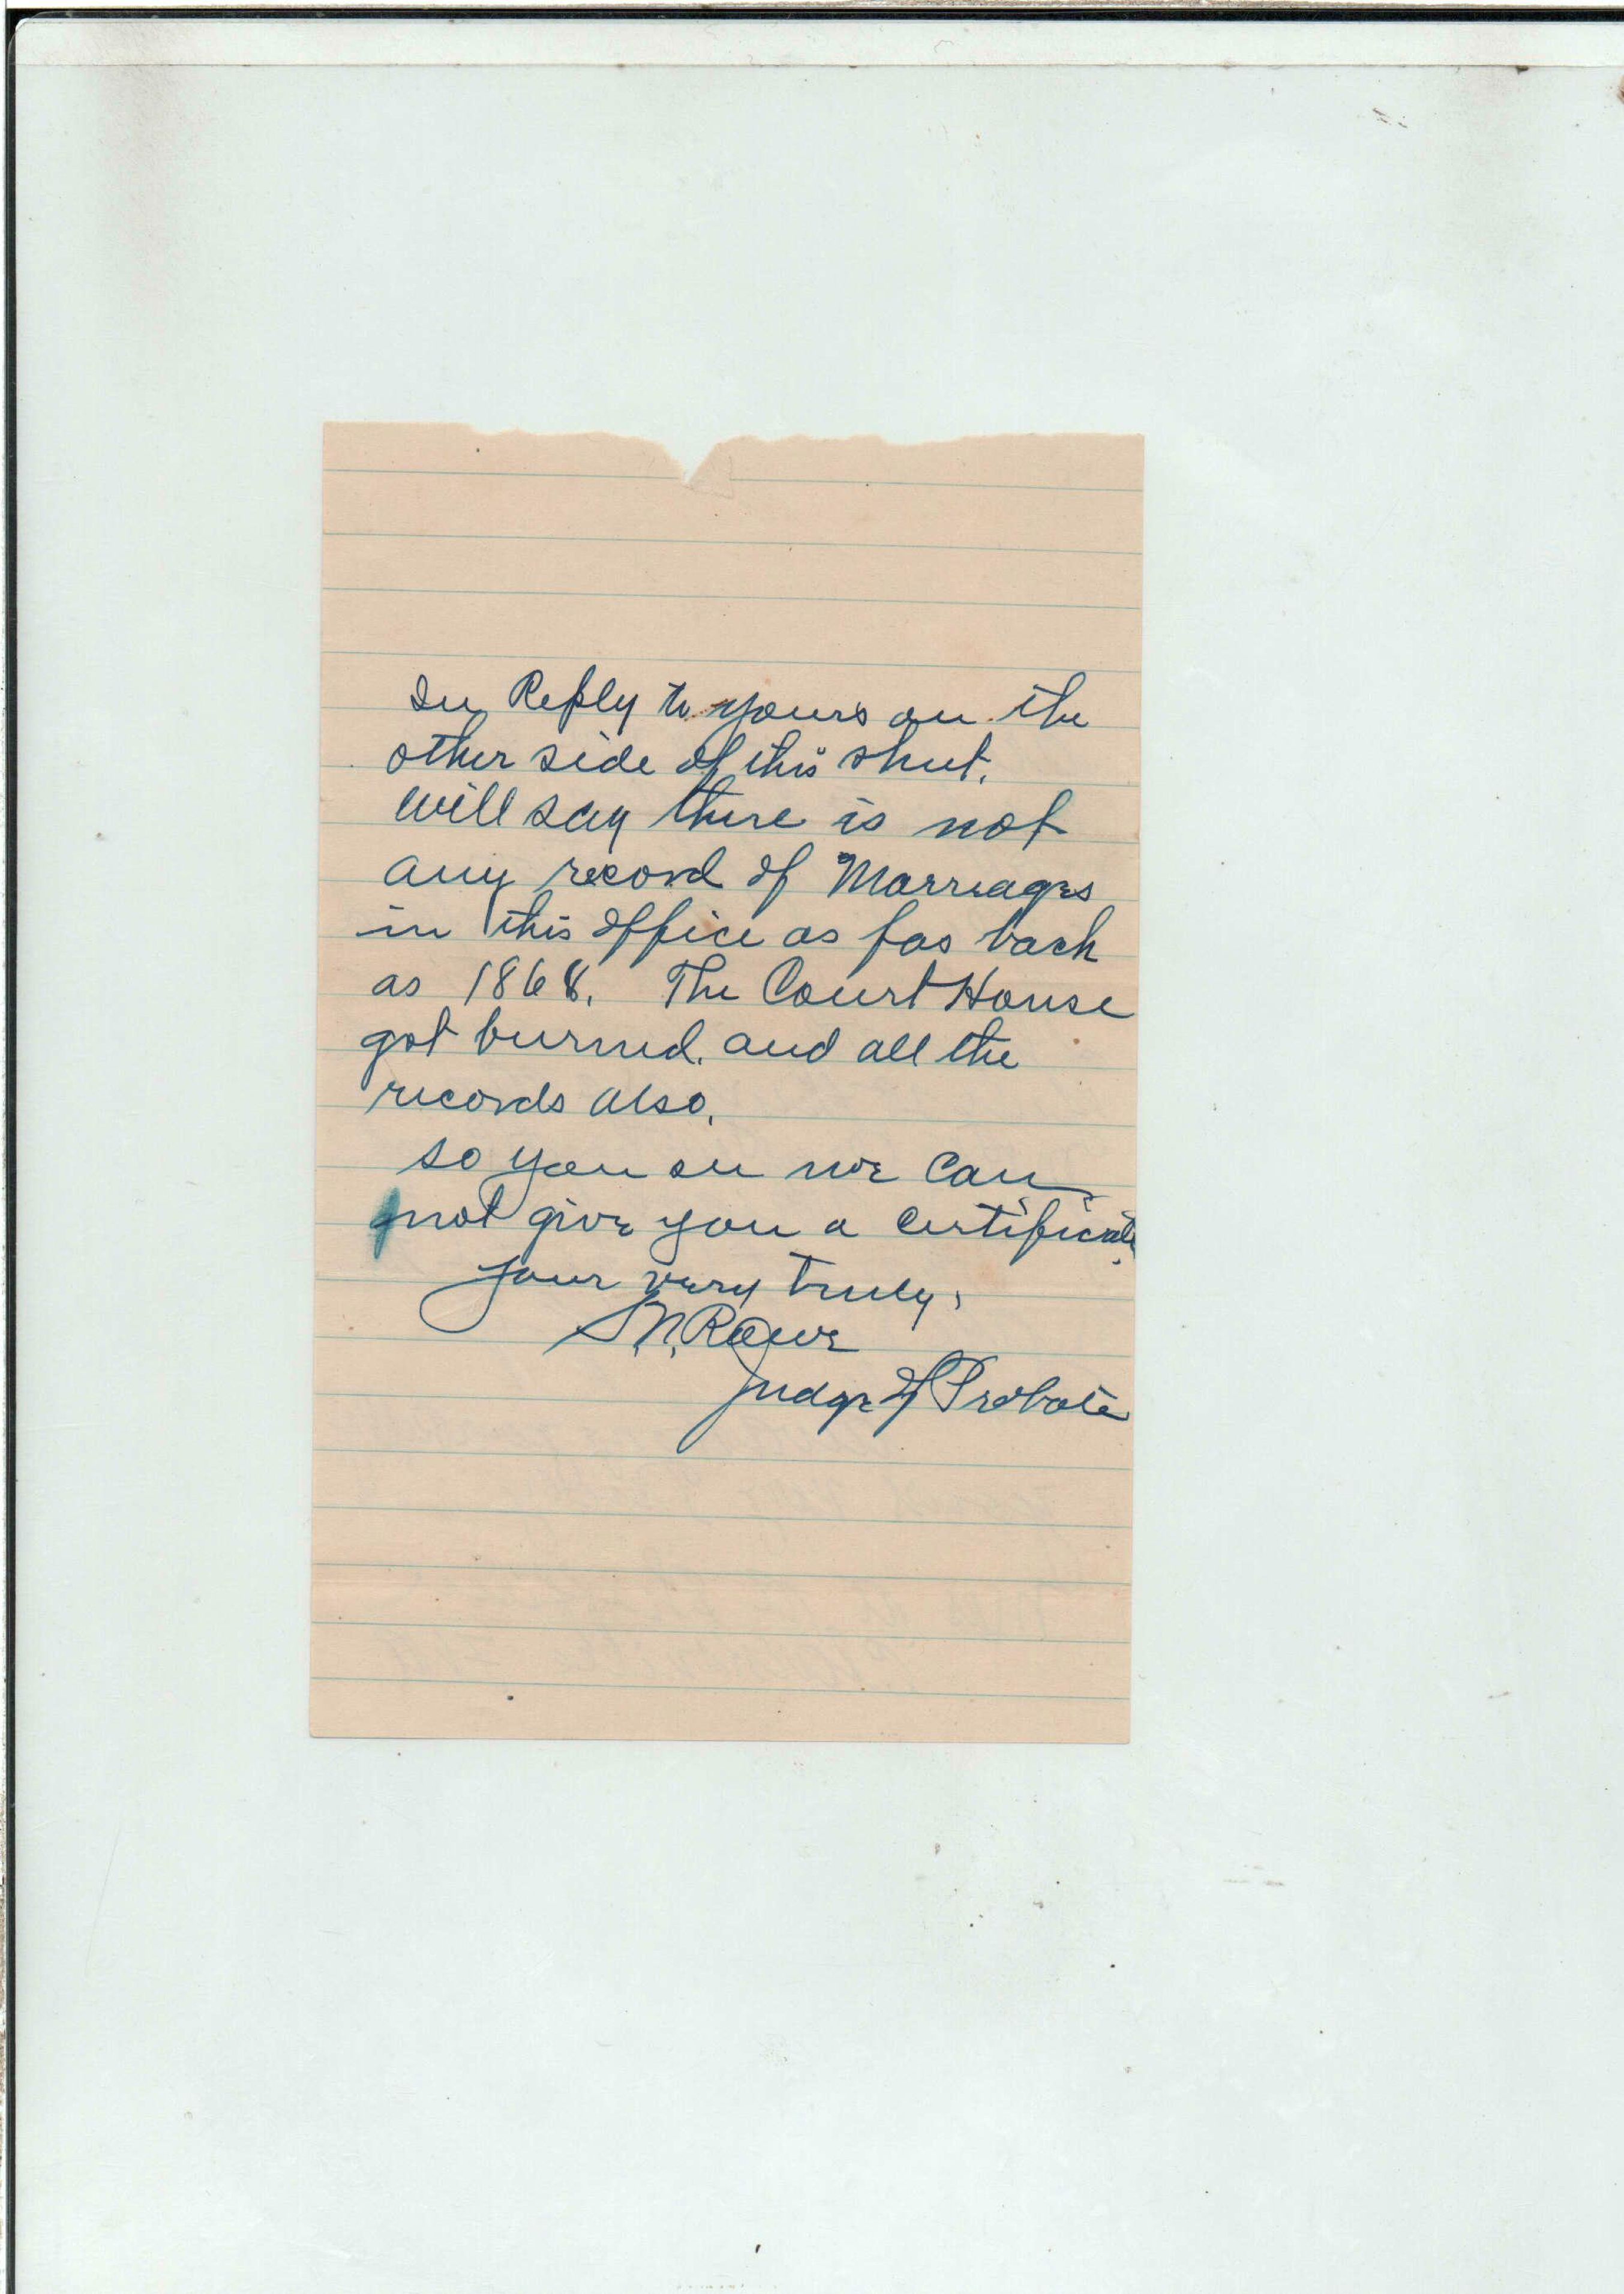 In Reply to yours on the
other side of this sheet.
will say there is not
any record of Marriages
in this office as far back
as 1868. The Court House
got burned. and all the
records also.
so you see we can
not give you a certificate.
your very truly,
S.N. Rowe
Judge of Probate